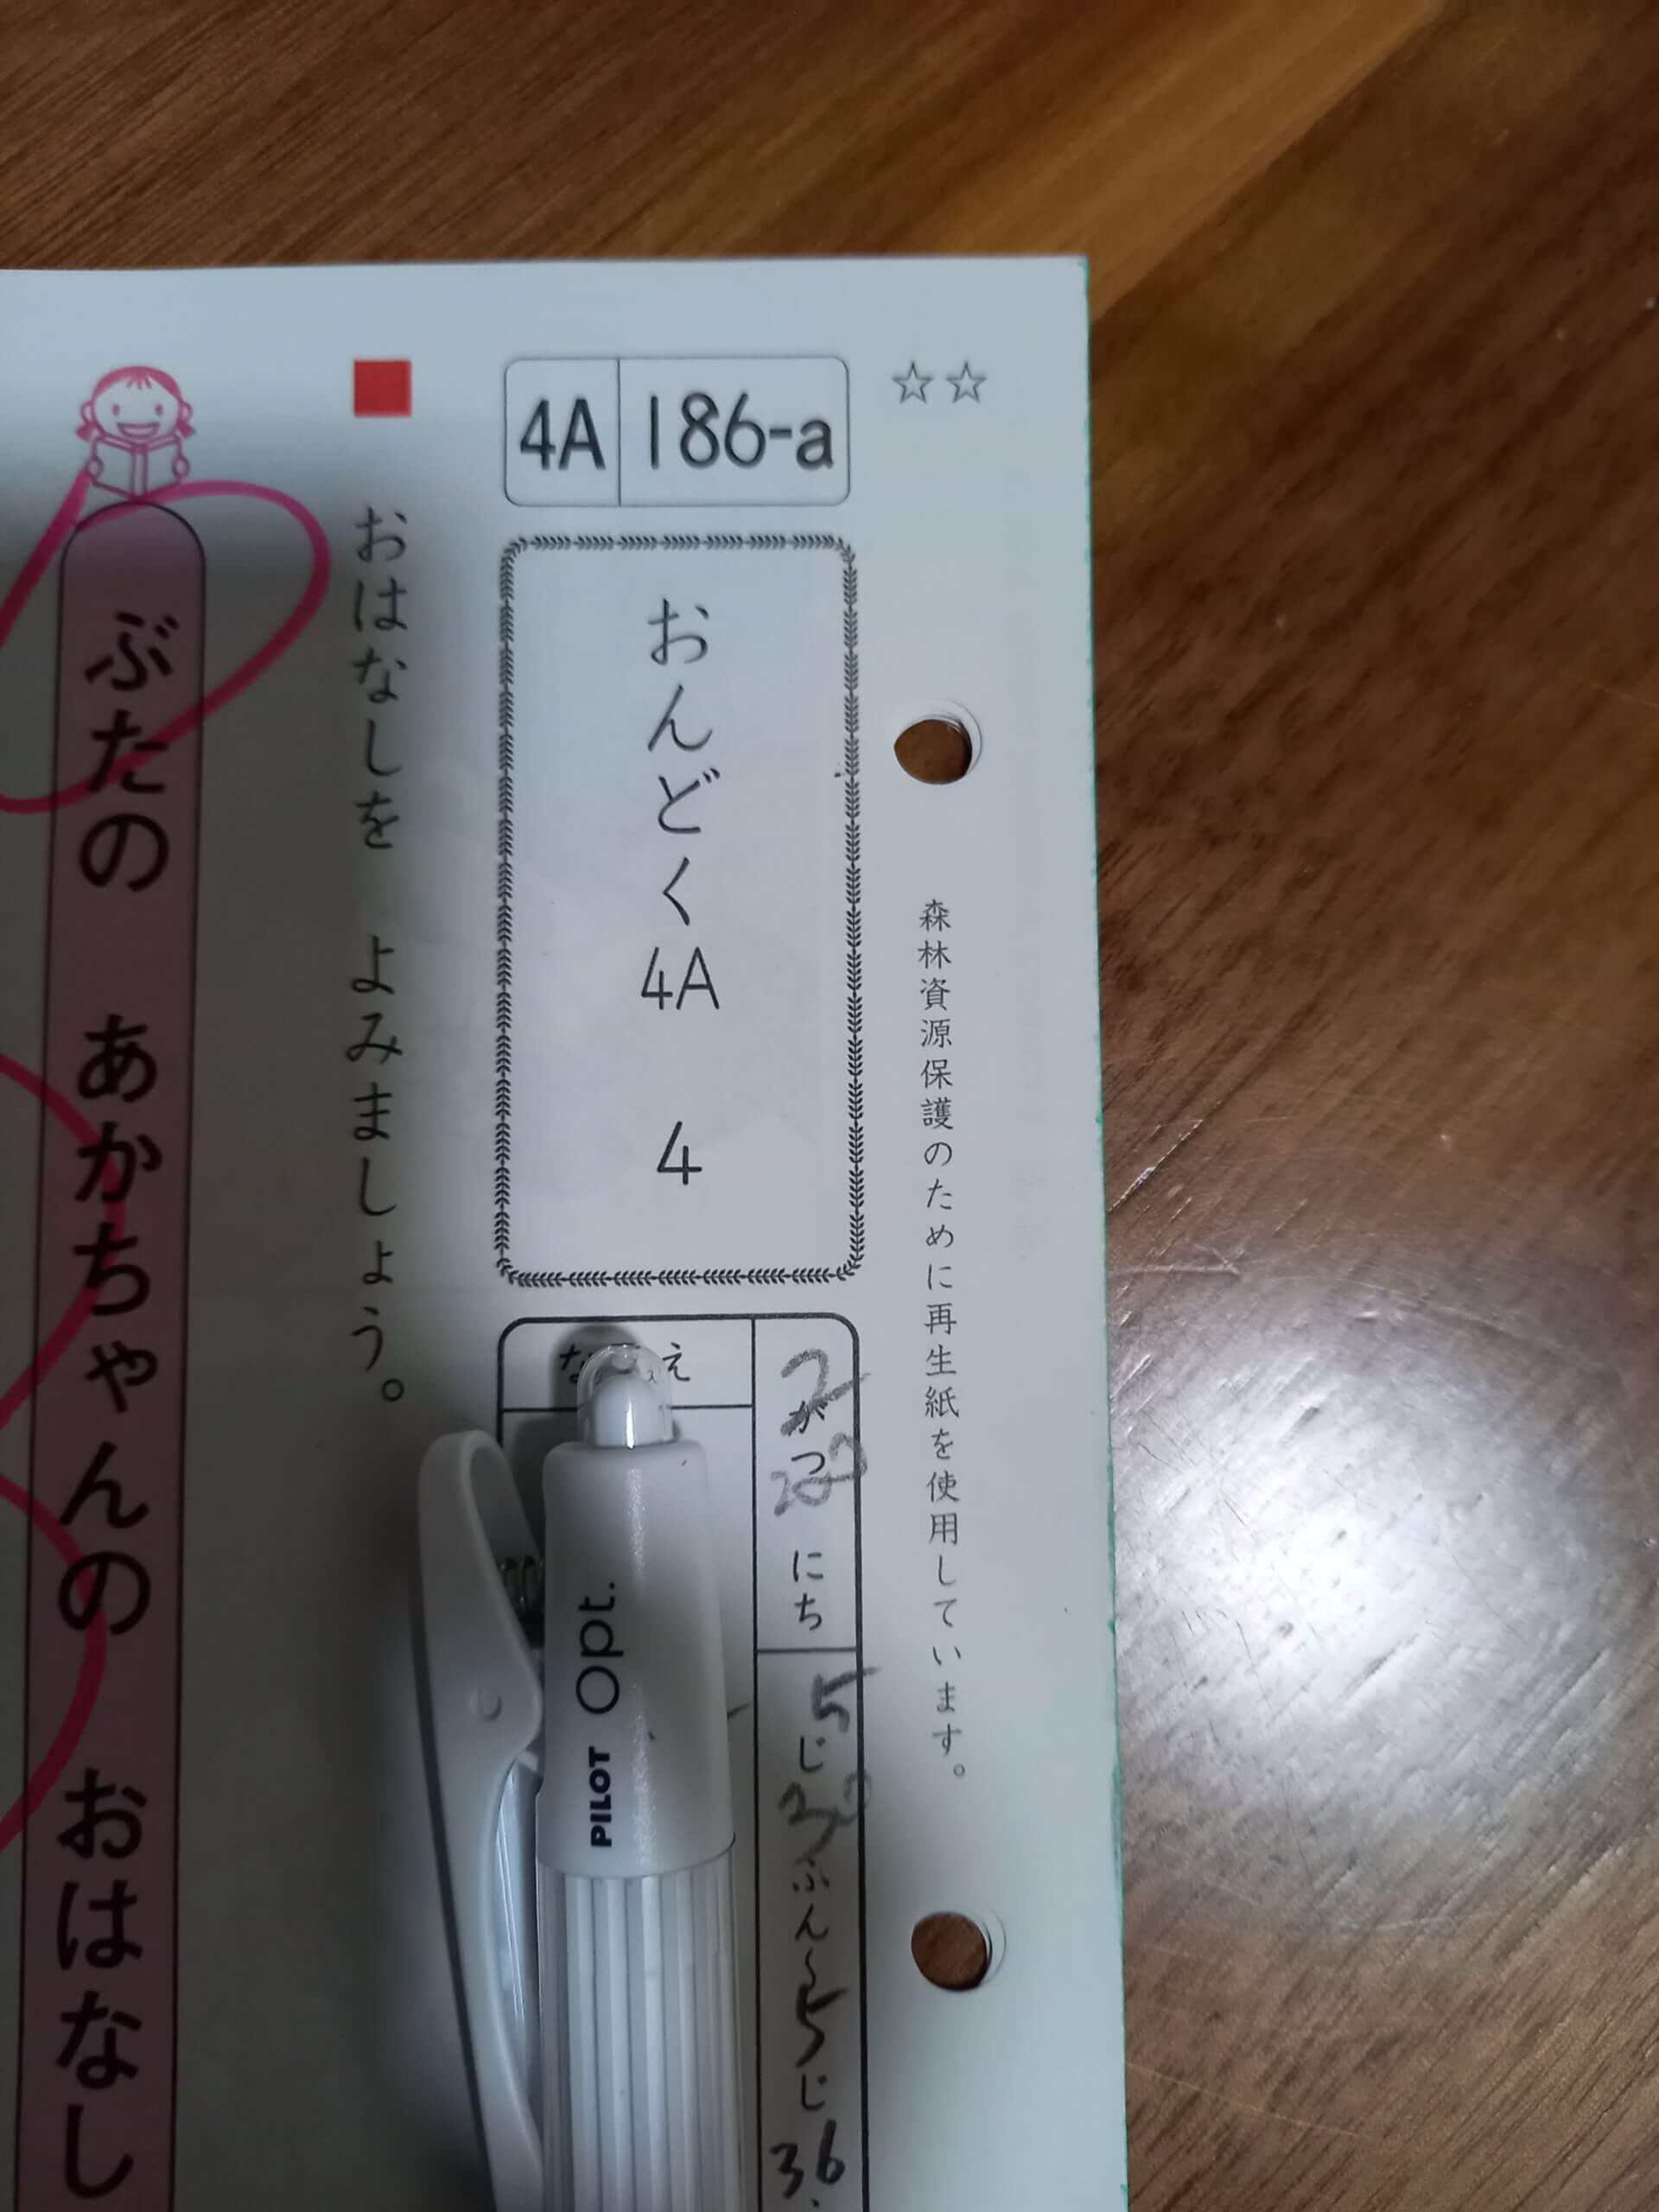 ☆☆
森林資源保護のために再生紙を使用しています。
4A 186-a
おんどく 4A 4
2がつ 20 にち
5じ30ふん〜5じ36
え
おはなしを よみましょう。
ぶたの あかちゃんの おはなし
PILOT Opt.